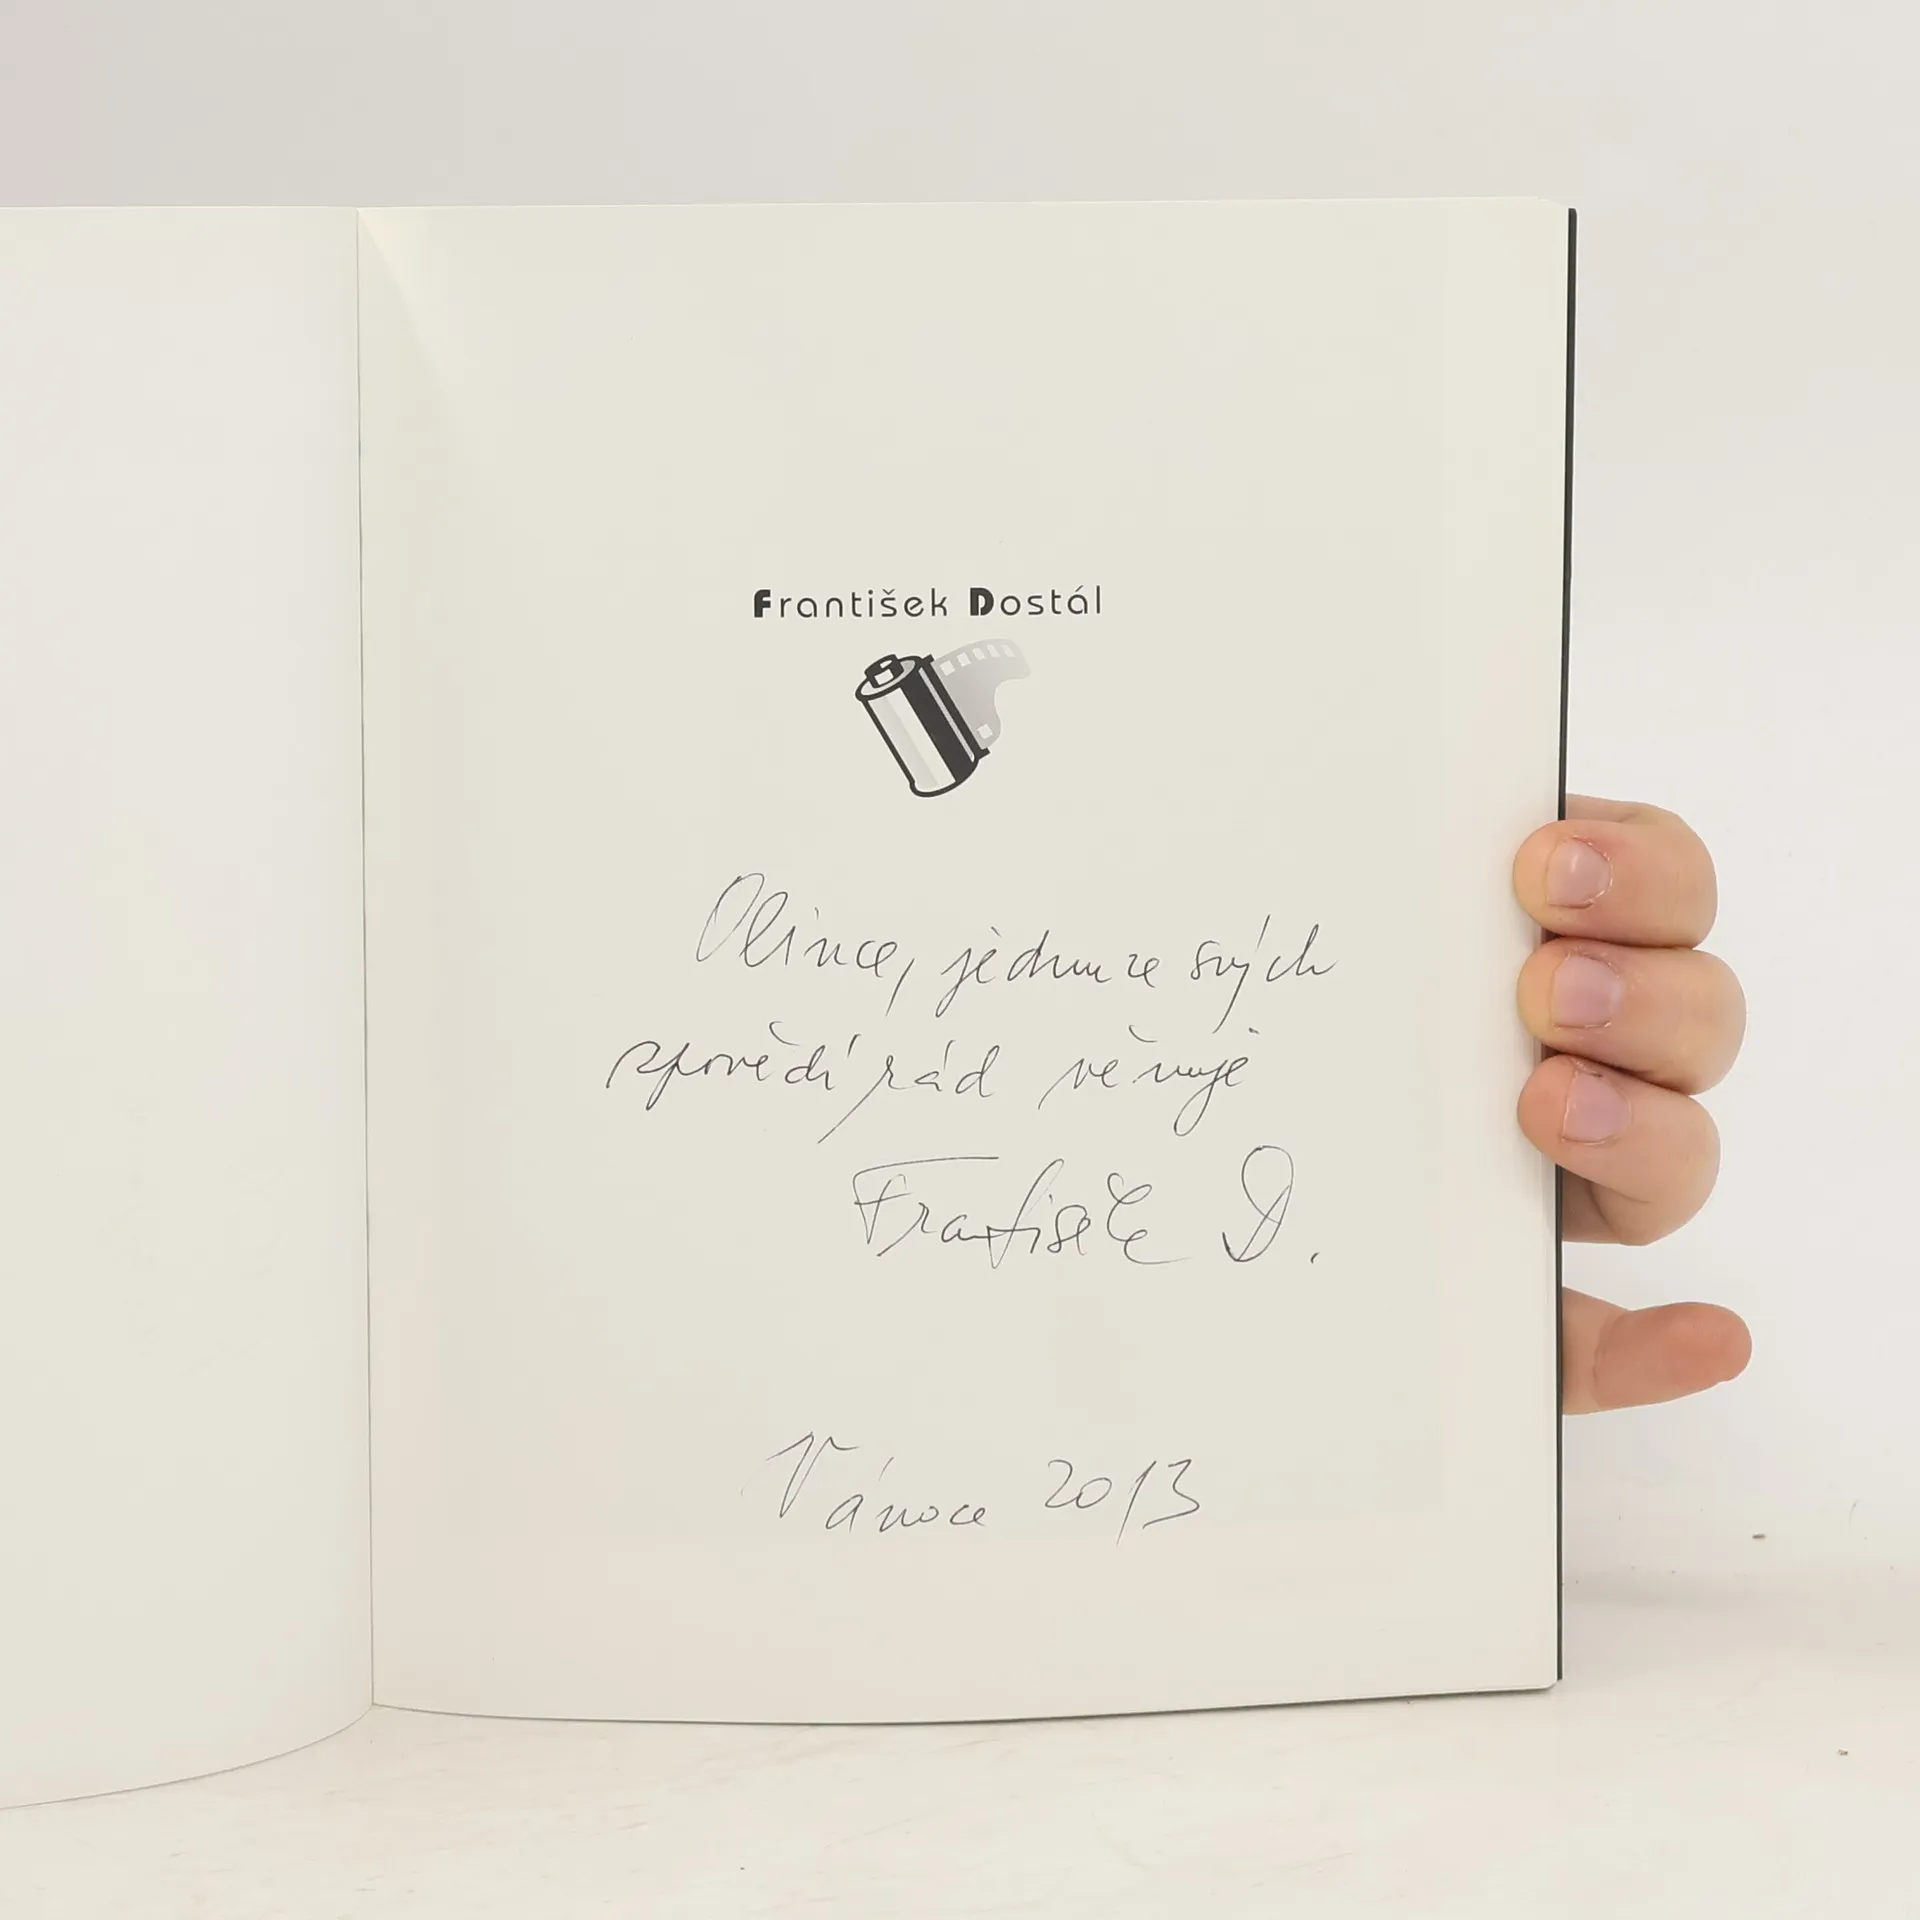 František Dostál
Olince, jednu ze svých
zpovědí rád věnuje
František D.
Vánoce 2013